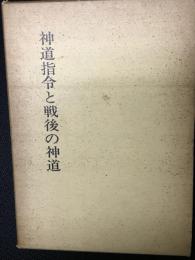 神道指令と戦後の神道